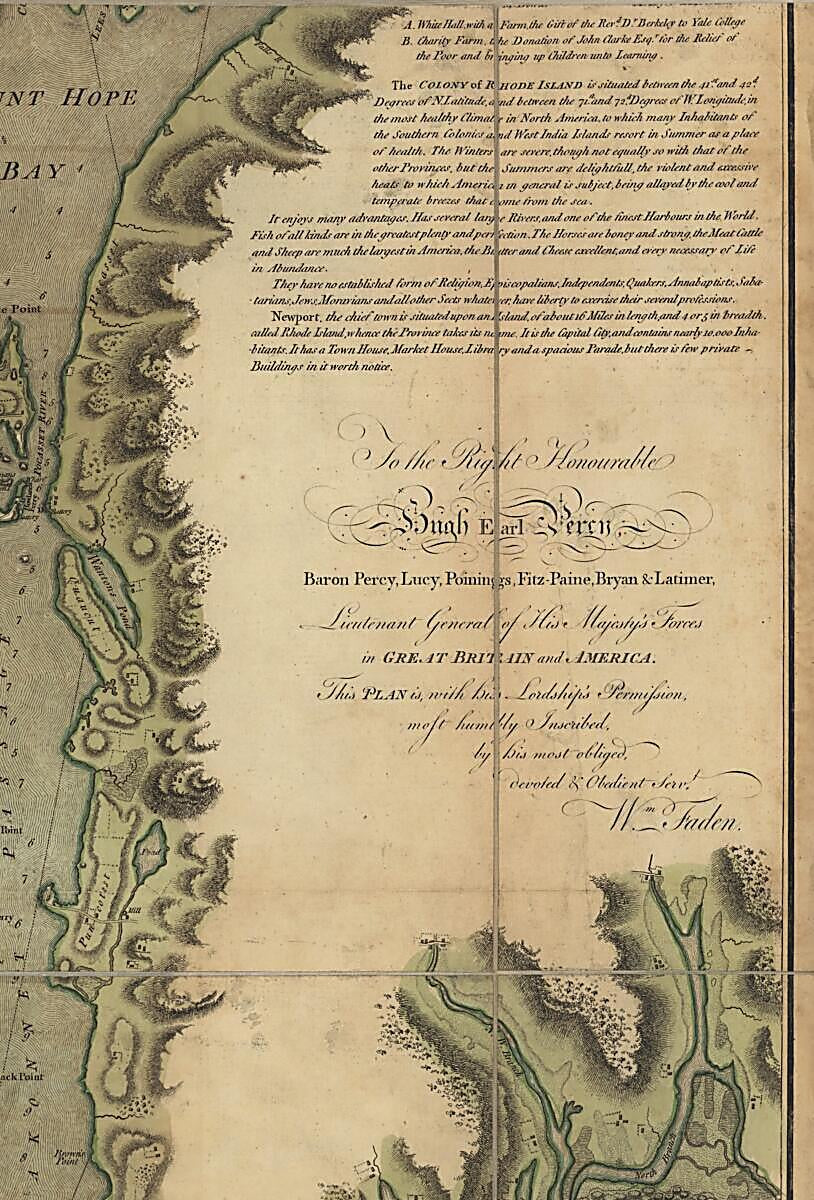 A. White Hall, with a Farm, the Gift of the Revd. Dr. Berkeley to Yale College
B. Charity Farm, the Donation of John Clarke Esqr. for the Relief of
the Poor and bringing up Children unto Learning.
The COLONY of RHODE ISLAND is situated between the 41st. and 42d.
Degrees of N. Latitude, and between the 71st. and 72d. Degrees of W. Longitude, in
the most healthy Climate in North America, to which many Inhabitants of
the Southern Colonies and West India Islands resort in Summer as a place
of health. The Winters are severe, though not equally so with that of the
other Provinces, but the Summers are delightfull, the violent and excessive
heats to which America in general is subject, being allayed by the cool and
temperate breezes that come from the sea.
It enjoys many advantages, Has several large Rivers, and one of the finest Harbours in the World.
Fish of all kinds are in the greatest plenty and perfection. The Horses are boney and strong, the Meat Cattle
and Sheep are much the largest in America, the Butter and Cheese excellent, and every necessary of Life
in Abundance.
They have no established form of Religion, Episcopalians, Independents, Quakers, Annabaptists, Saba-
tarians, Jews, Moravians and all other Sects whatever, have liberty to exercise their several professions.
Newport, the chief town is situated upon an Island, of about 16 Miles in length, and 4 or 5 in breadth,
called Rhode Island, whence the Province takes its name. It is the Capital City, and contains nearly 10,000 Inha-
bitants. It has a Town House, Market House, Library and a spacious Parade, but there is few private
Buildings in it worth notice.
To the Right Honourable
Hugh Earl Percy,
Baron Percy, Lucy, Poinings, Fitz-Paine, Bryan & Latimer,
Lieutenant General of His Majesty's Forces
in GREAT BRITAIN and AMERICA.
This PLAN is, with his Lordship's Permiſsion,
moſt humbly Inscribed,
by his most obliged,
devoted & Obedient Servt.
Wm. Faden.
UNT HOPE
BAY
Pocasset
Point
POCASSET RIVER
Wantons Pond
Quaucut
Pond
Mill
Puncotest
Point
PASSAGE
AKONNET
ack Point
Browns
Point
W. Branch
North Branch